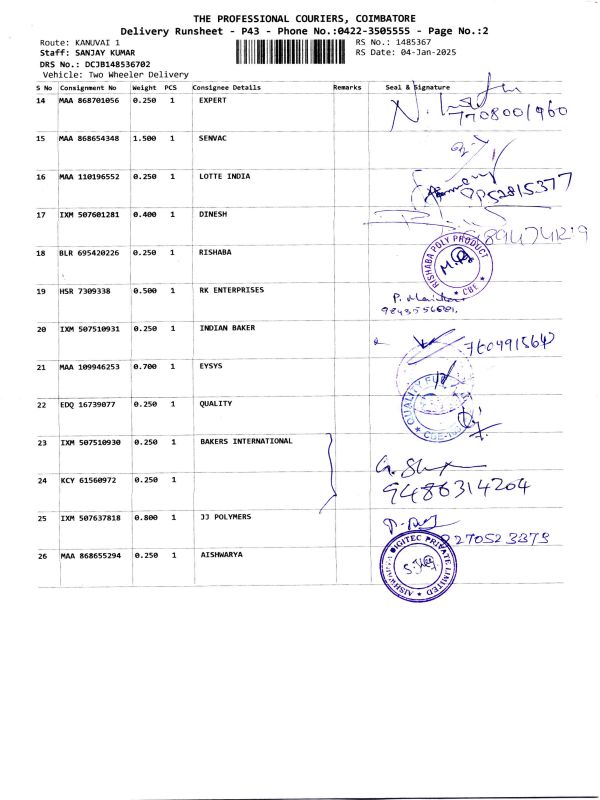 THE PROFESSIONAL COURIERS, COIMBATORE
Delivery Runsheet - P43 - Phone No.:0422-3505555 - Page No.:2
Route: KANUVAI 1 RS No.: 1485367
Staff: SANJAY KUMAR RS Date: 04-Jan-2025
DRS No.: DCJB148536702
Vehicle: Two Wheeler Delivery
S No Consignment No Weight PCS Consignee Details Remarks Seal & Signature
14 MAA 868701056 0.250 1 EXPERT
7708001960
15 MAA 868654348 1.500 1 SENVAC
16 MAA 110196552 0.250 1 LOTTE INDIA
17 IXM 507601281 0.400 1 DINESH
18 BLR 695420226 0.250 1 RISHABA
RISHABA POLY PRODUCT
* CBE *
19 HSR 7309338 0.500 1 RK ENTERPRISES
20 IXM 507510931 0.250 1 INDIAN BAKER
21 MAA 109946253 0.700 1 EYSYS
22 EDQ 16739077 0.250 1 QUALITY
QUALITY
23 IXM 507510930 0.250 1 BAKERS INTERNATIONAL
24 KCY 61560972 0.250 1
9486314204
25 IXM 507637818 0.800 1 JJ POLYMERS
26 MAA 868655294 0.250 1 AISHWARYA
AISHWARYA DIGITEC PRIVATE LIMITED